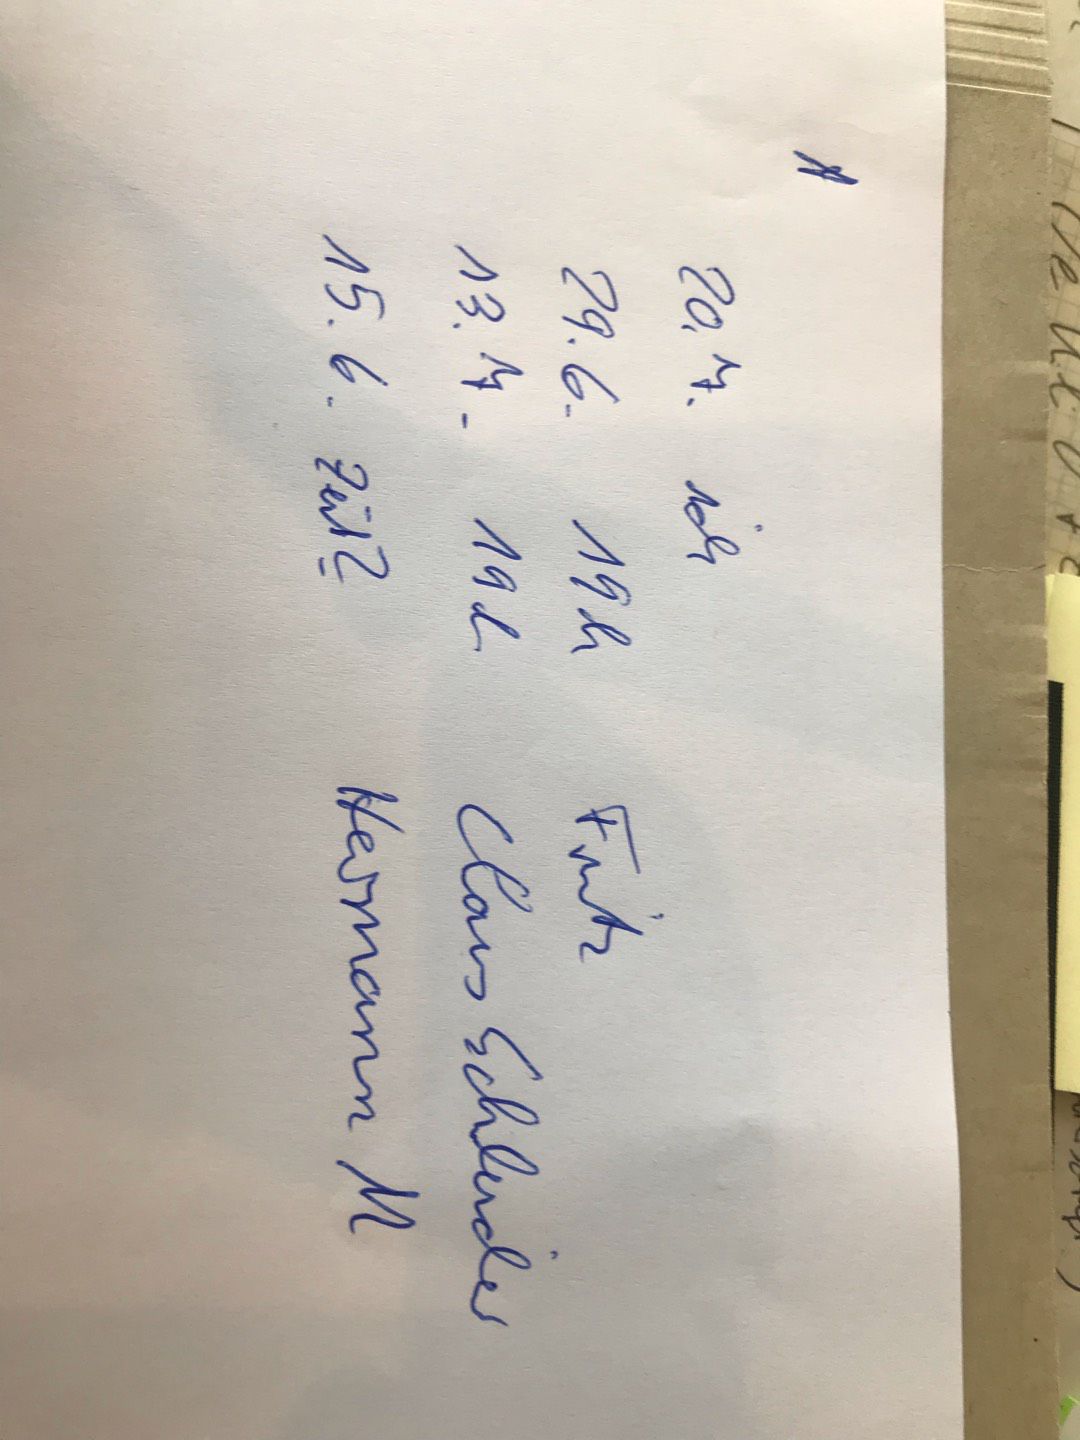 20. 7. ich
29. 6. 19 h Fritz
13. 7. 19 h Claus Schleider
15. 6. Zeit? Hermann M